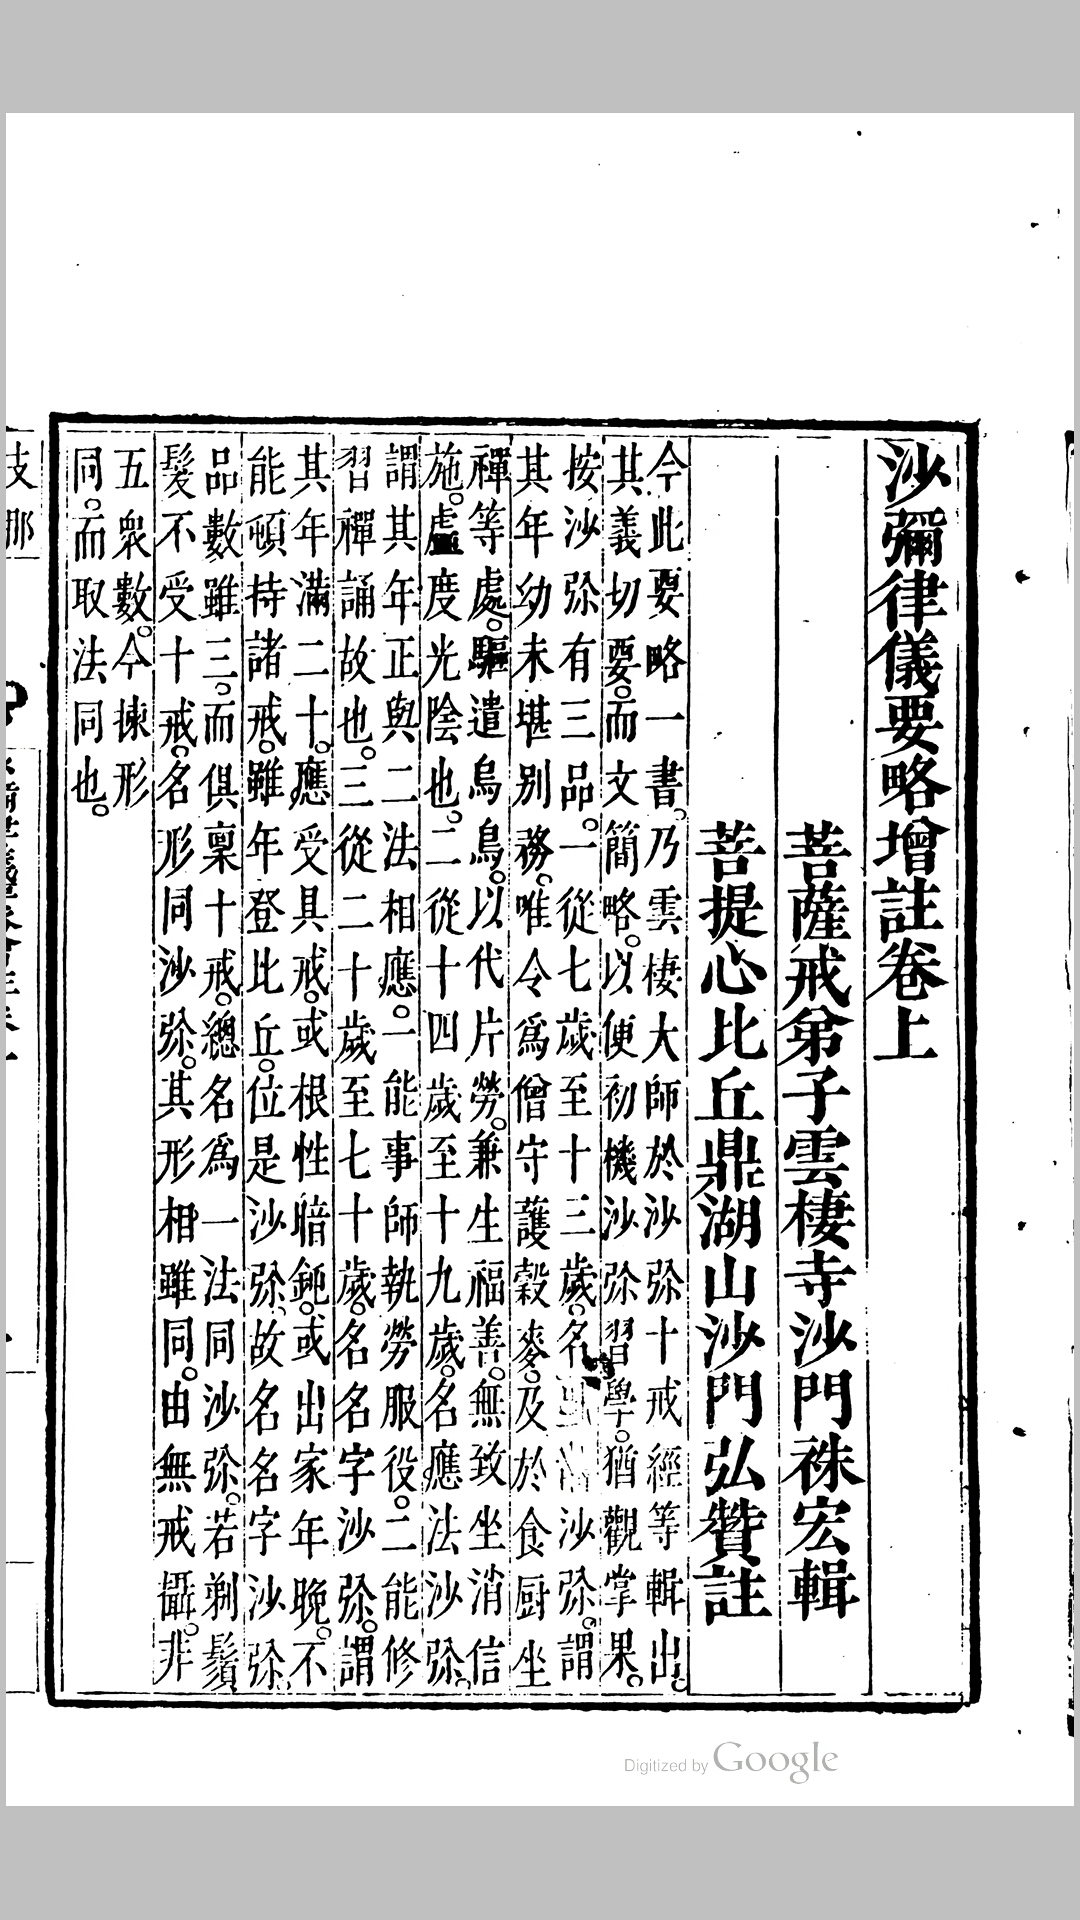 沙彌律儀要略增註卷上
菩薩戒弟子雲棲寺沙門祩宏輯
菩提心比丘鼎湖山沙門弘贊註
今此要略一書。乃雲棲大師於沙弥十戒經等輯出。
其義切要。而文簡略。以便初機沙弥習學。猶觀掌果。
按沙弥有三品。一從七歲至十三歲。名沙弥。謂
其年幼未堪別務。唯令為僧守護穀麥。及於食厨坐
禪等處。驅遣烏鳥。以代片勞。兼生福善。無致坐消信
施。虛度光陰也。二從十四歲至十九歲。名應法沙弥。
謂其年正與二法相應。一能事師執勞服役。二能修
習禪誦故也。三從二十歲至七十歲。名名字沙弥。謂
其年滿二十。應受具戒。或根性暗鈍。或出家年晚。不
能頓持諸戒。雖年登比丘。位是沙弥。故名名字沙弥。
品數雖三。而俱稟十戒。總名為一法同沙弥。若剃鬚
髮不受十戒。名形同沙弥。其形相雖同。由無戒攝。非
五眾數。今揀形
同。而取法同也。
支那
Digitized by Google